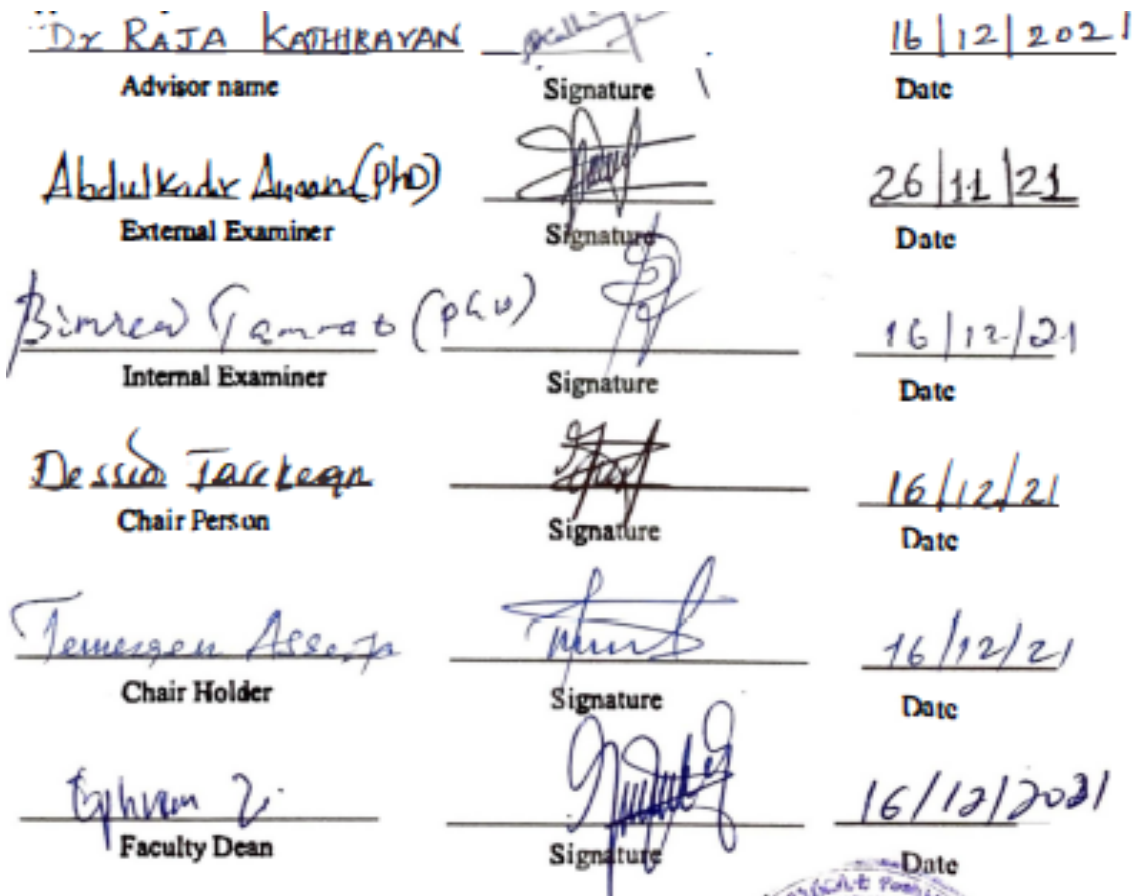 Dr RAJA KATHIRAVAN 16/12/2021
Advisor name Signature Date
Abdulkadr (PhD) 26/11/21
External Examiner Signature Date
(PhD) 16/12/21
Internal Examiner Signature Date
16/12/21
Chair Person Signature Date
Temesgen 16/12/21
Chair Holder Signature Date
Ephrem 16/12/2021
Faculty Dean Signature Date